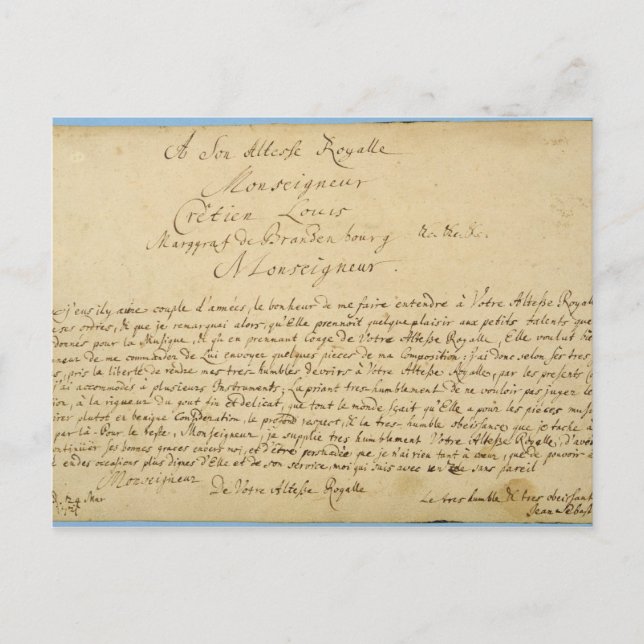 A Son Altesse Royalle
Monseigneur
Crêtien Louis
Marggraf de Brandenbourg &c &c &c.
Monseigneur.
j'eus il y a une couple d'années, le bonheur de me faire entendre à Votre Altesse Royalle
ses ordres, & que je remarquai alors, qu'Elle prennoit quelque plaisir aux petits talents que
donnés pour la Musique, & qu'en prennant Conge de Votre Altesse Royalle, Elle voulut bi
neur de me commander de Lui envoyer quelques pieces de ma Composition: j'ai donc selon ses tres
, pris la liberté de rendre mes tres-humbles devoirs à Votre Altesse Royalle, par les presents C
j'ai accommodés à plusieurs Instruments; La priant tres-humblement de ne vouloir pas juger le
ion, à la rigueur du gout fin et delicat, que tout le monde sçait qu'Elle a pour les pièces mu
irer plutot en benigne Consideration, le profond respect, & la tres-humble obeissance que je tache à
par là. Pour le reste, Monseigneur, je supplie tres humblement Votre Altesse Royalle, d'avoi
ontinüer ses bonnes graces envers moi, et d'être persuadée que je n'ai rien tant à cœur, que de pouvoir ê
endes occasions plus dignes d'Elle et de son service, moi qui suis avec un zele sans pareil
Monseigneur
De Votre Altesse Royalle
24 Mar
Le tres humble & tres obeissant
Jean Sebast